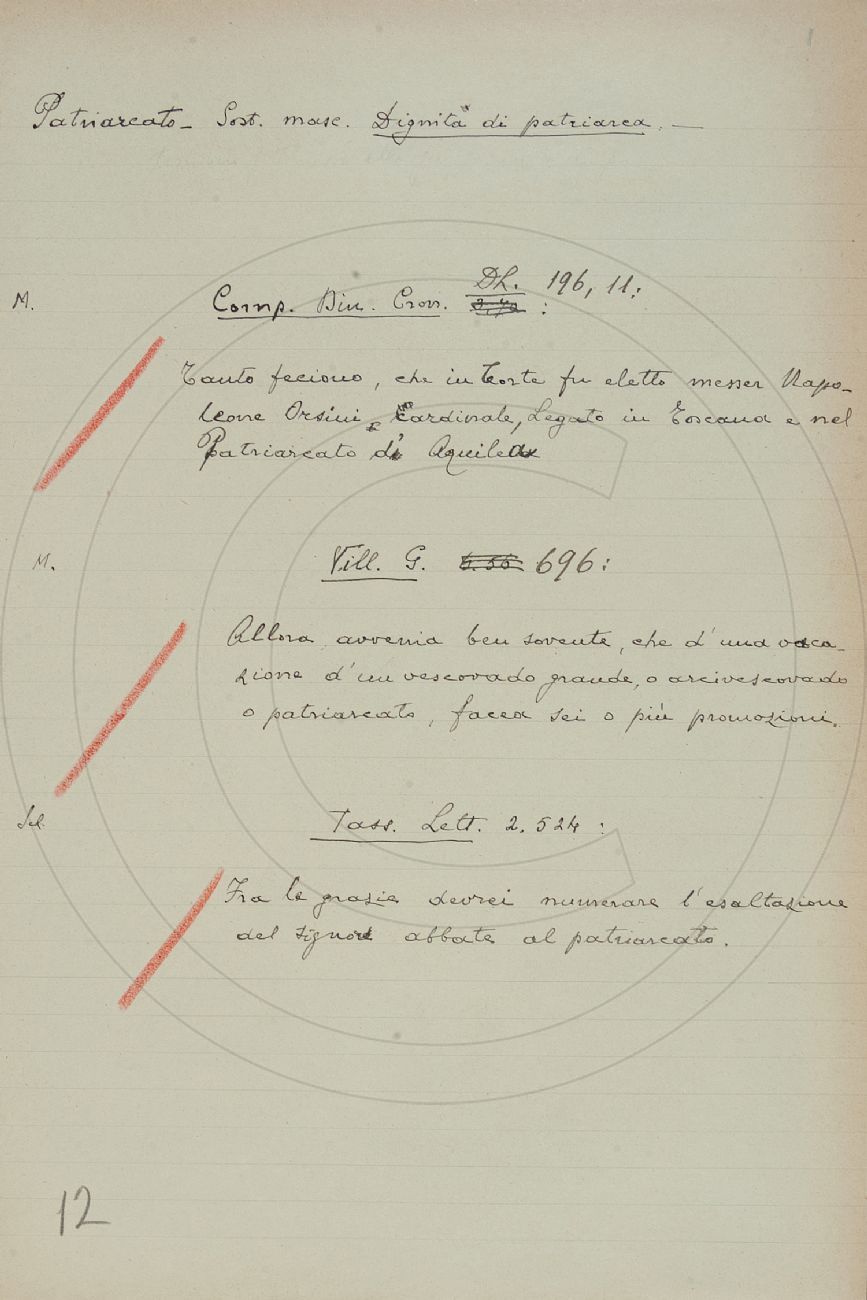 Patriarcato - Sost. masc. Dignità di patriarca. —
M. Comp. Din. Cron. Dh. 196, 11:
Tanto feciono, che in Corte fu eletto messer Napo-
leone Orsini, Cardinale, Legato in Toscana e nel
Patriarcato di Aquilea
M. Vill. G. 696:
Allora avvenia ben sovente, che d'una vaca-
zione d'un vescovado grande, o arcivescovado
o patriarcato, facea sei o più promozioni.
Tass. Lett. 2. 524:
Fra le grazie devrei numerare l'esaltazione
del signore abbate al patriarcato.
12